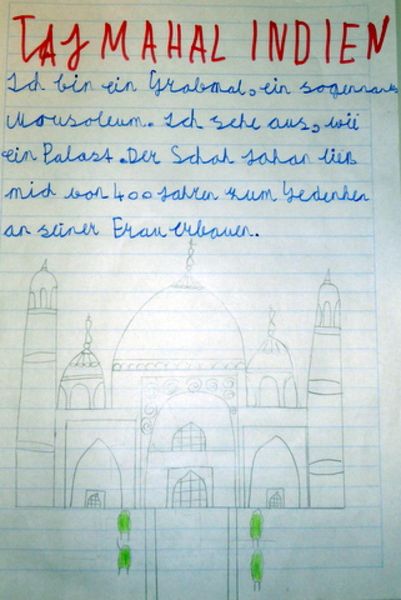 TAJ MAHAL INDIEN
Ich bin ein Grabmal, ein sogenanntes
Mousoleum. Ich sehe aus, wie
ein Palast. Der Schah Jahan ließ
mich vor 400 Jahren zum Gedenken
an seiner Frau erbauen.